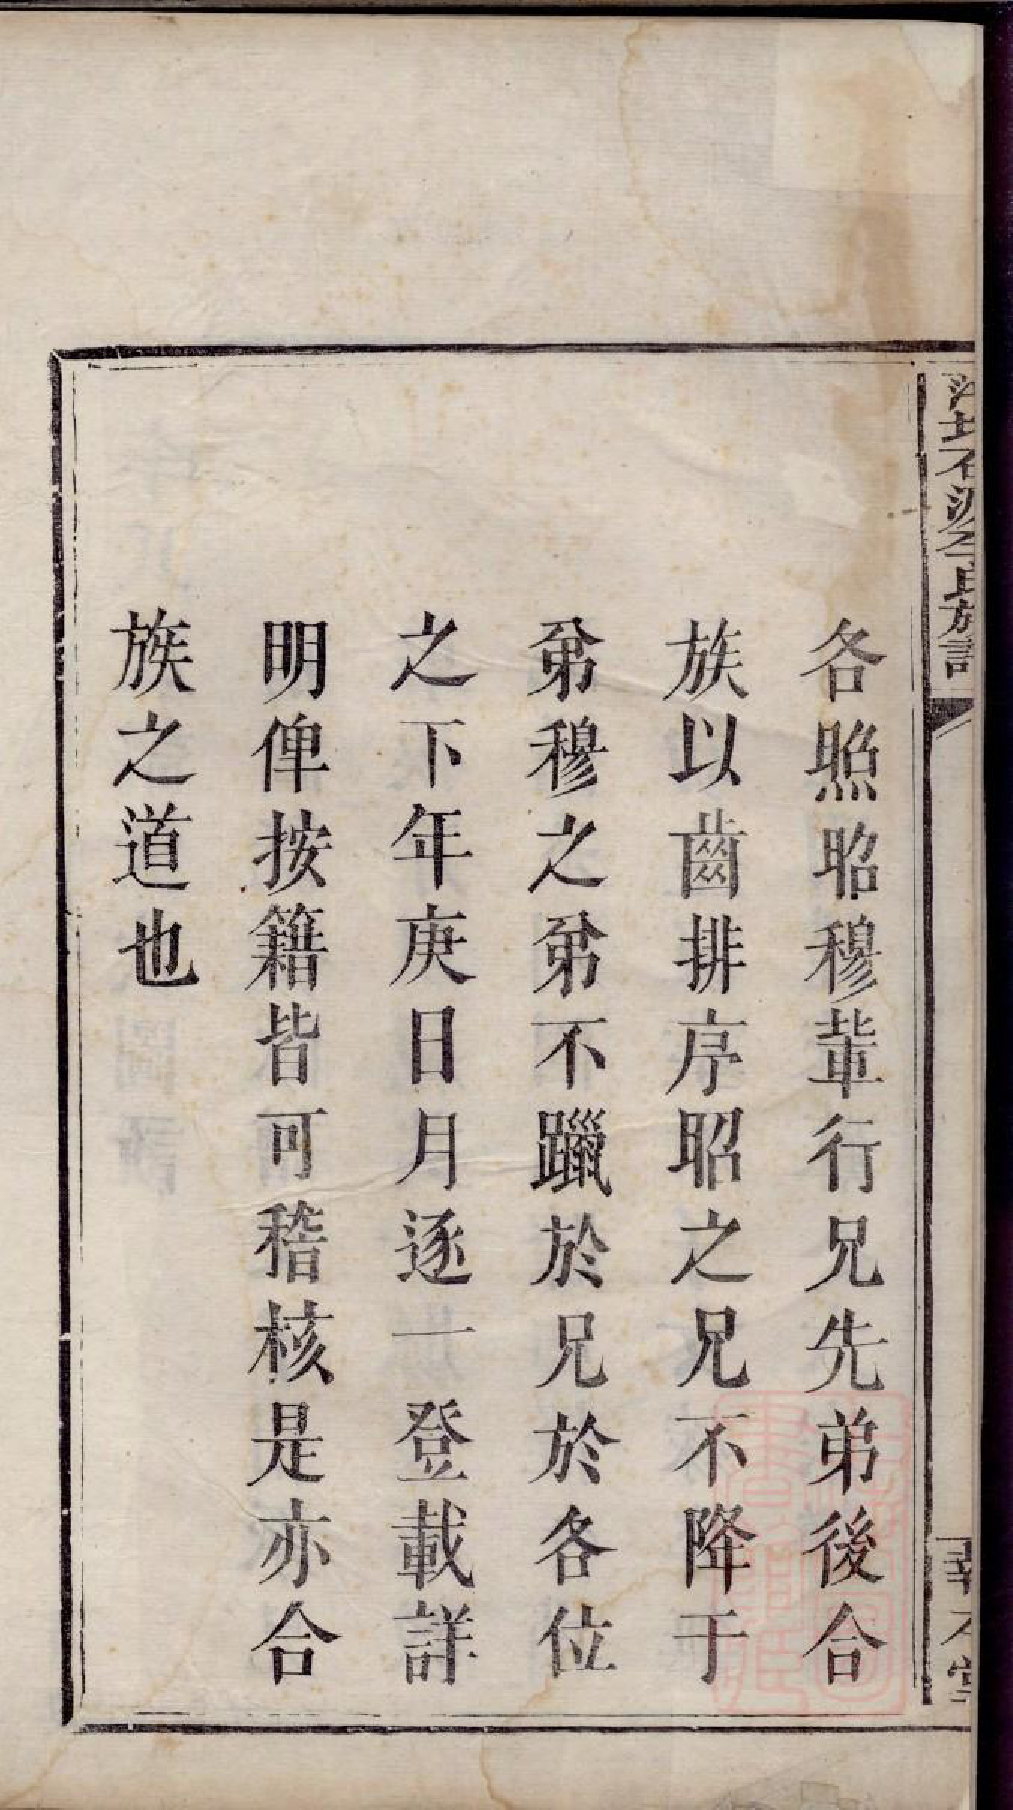 各照昭穆輩行兄先弟後合
族以齒排序昭之兄不降于
弟穆之弟不躐於兄於各位
之下年庚日月逐一登載詳
明俾按籍皆可稽核是亦合
族之道也